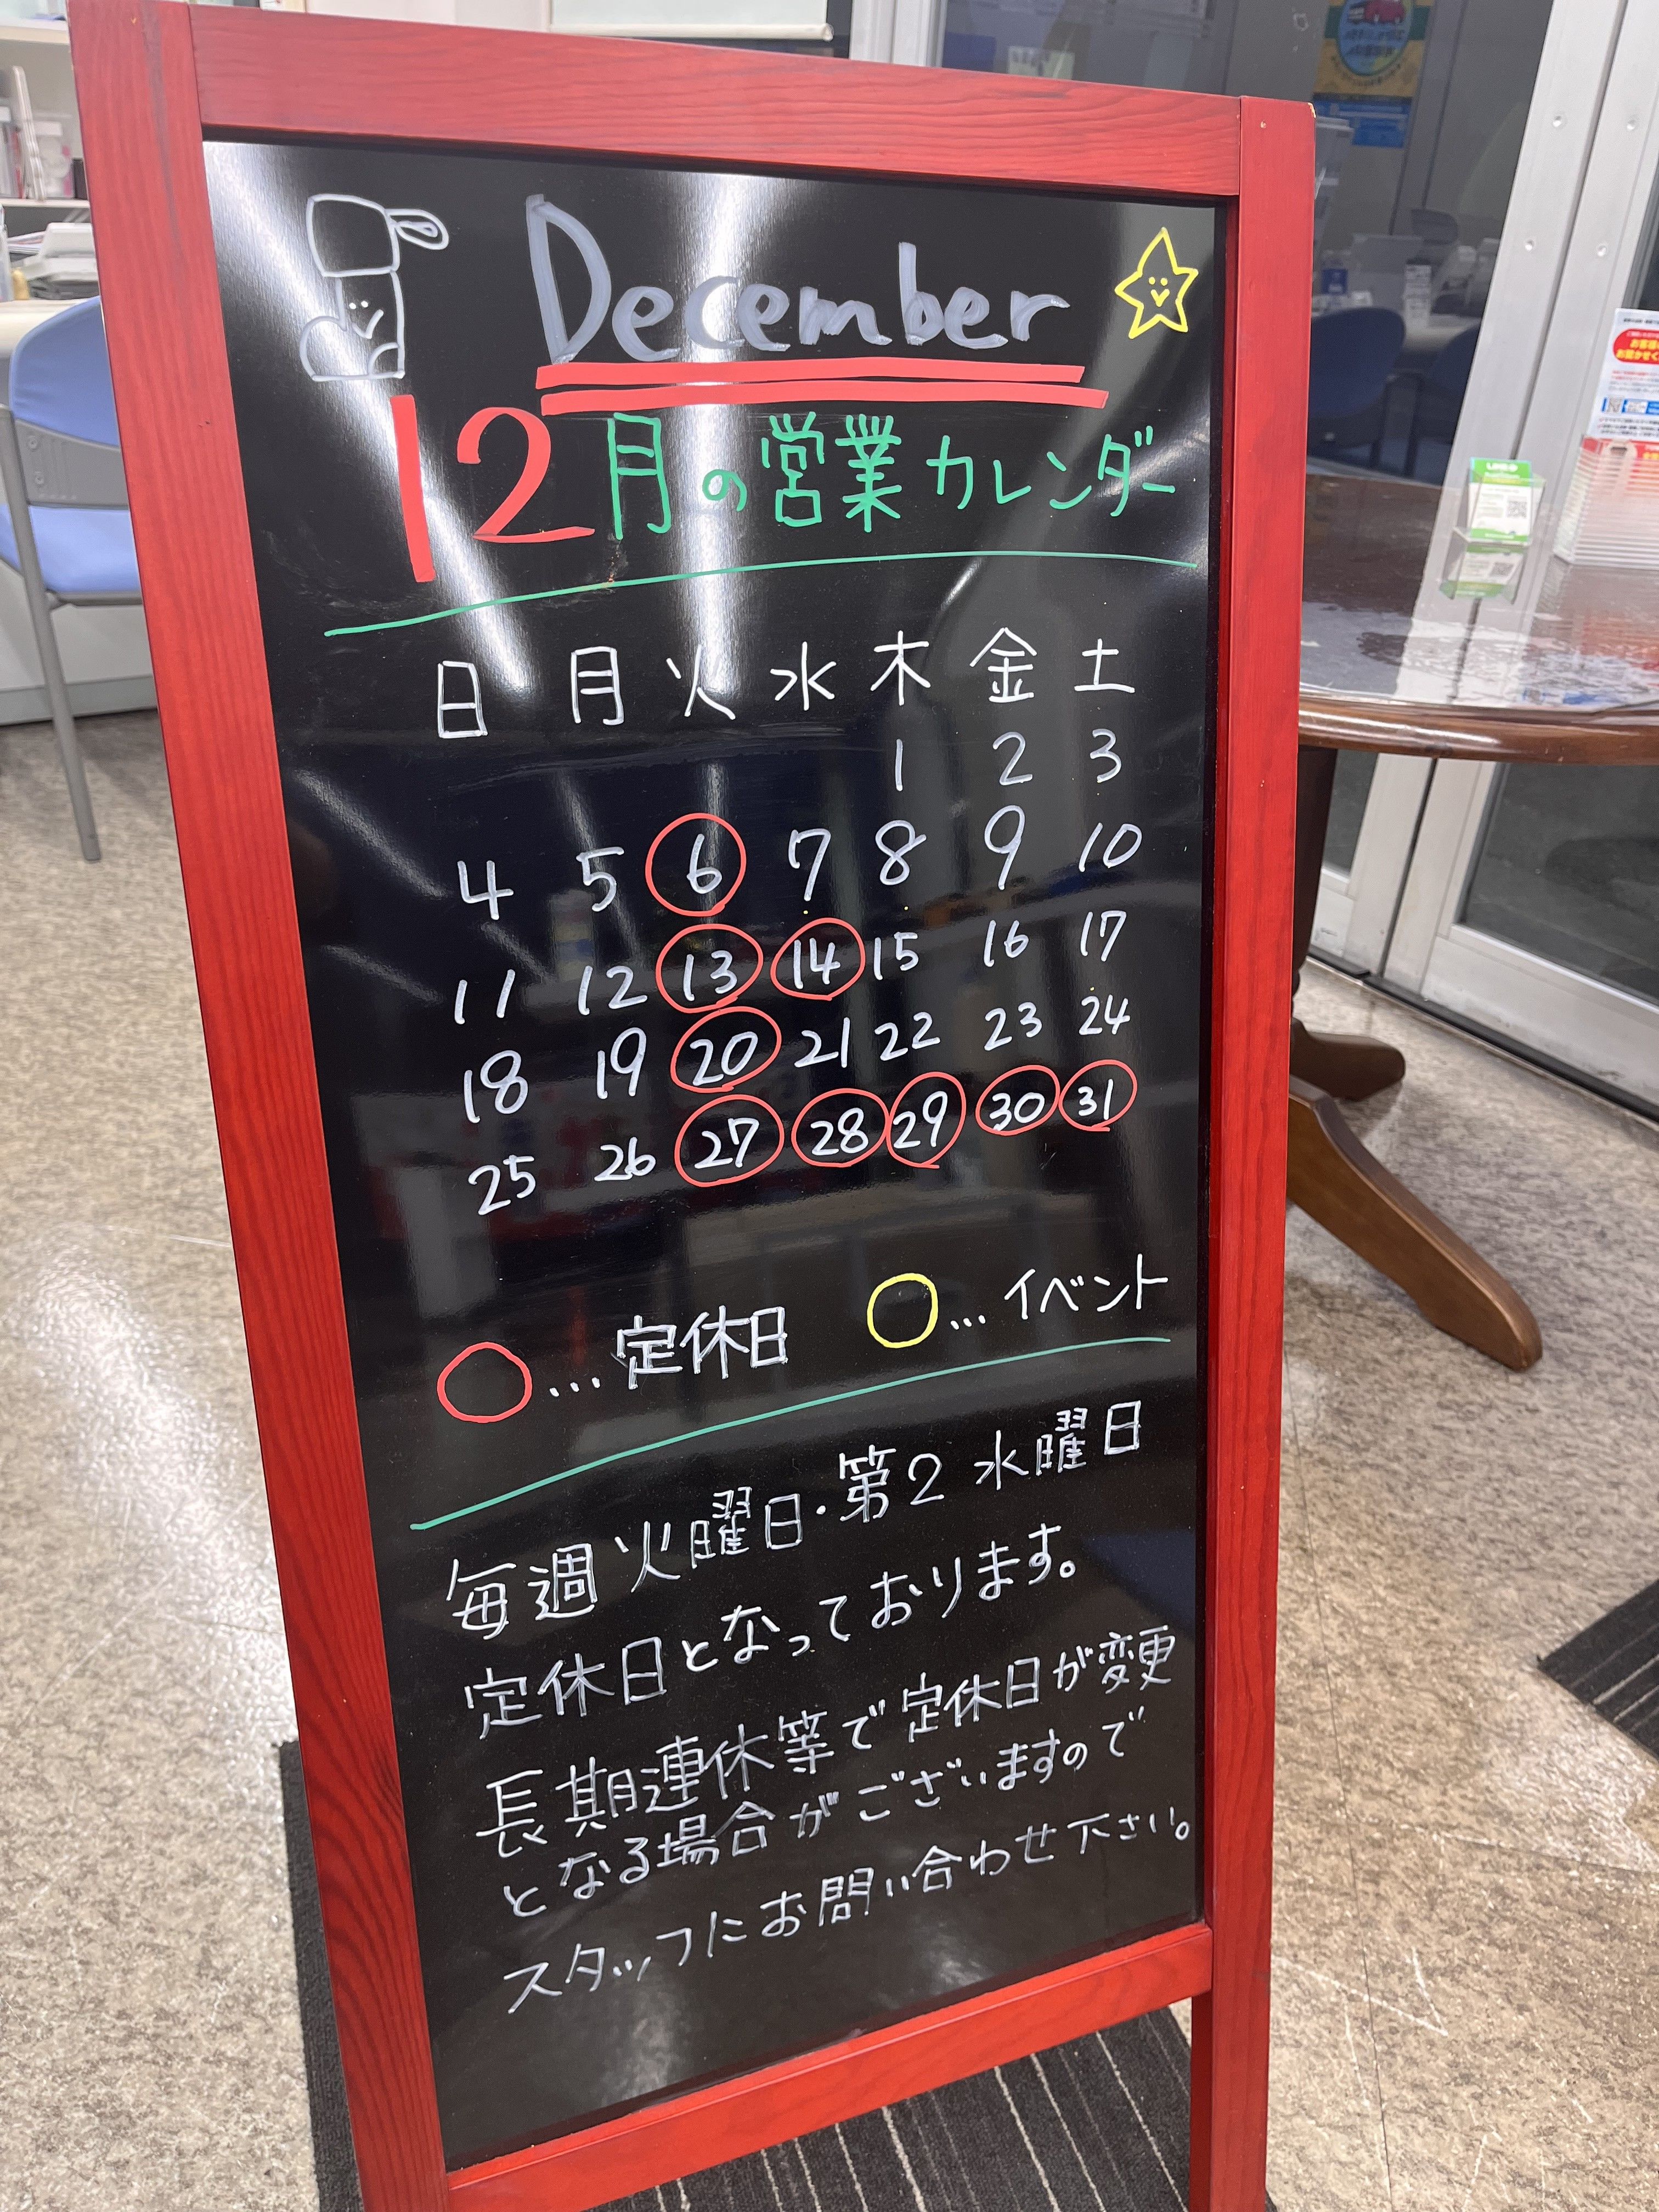 December
12月の営業カレンダー
日 月 火 水 木 金 土
1 2 3
4 5 6 7 8 9 10
11 12 13 14 15 16 17
18 19 20 21 22 23 24
25 26 27 28 29 30 31
…定休日 …イベント
毎週火曜日・第2水曜日
定休日となっております。
長期連休等で定休日が変更
となる場合がございますので
スタッフにお問い合わせ下さい。